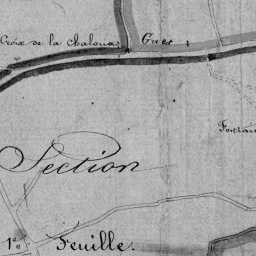 Croix de la Chaloua
Gues
Fontai
Section
1e Feuille.